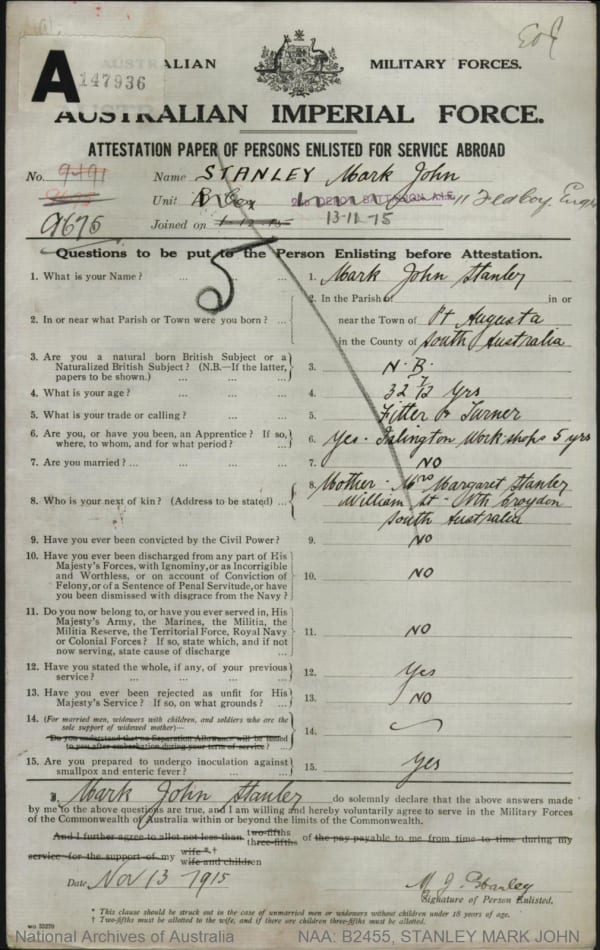 A
147936
AUSTRALIAN MILITARY FORCES.
AUSTRALIAN IMPERIAL FORCE.
ATTESTATION PAPER OF PERSONS ENLISTED FOR SERVICE ABROAD
No. 9491 Name STANLEY Mark John
9675 Unit 2ND DEPOT BATTALION A.I.F. 11 Fed
9675 Joined on 1-12-15 13-12-15
5
Questions to be put to the Person Enlisting before Attestation.
1. What is your Name? ... 1. Mark John Stanley
2. In or near what Parish or Town were you born? ... 2. In the Parish of in or
near the Town of Pt Augusta
in the County of South Australia
3. Are you a natural born British Subject or a
Naturalized British Subject? (N.B.—If the latter,
papers to be shown.) ... 3. N. B.
4. What is your age? ... 4. 32 7/12 Yrs
5. What is your trade or calling? ... 5. Fitter & Turner
6. Are you, or have you been, an Apprentice? If so,
where, to whom, and for what period? ... 6. Yes. Islington Workshops 5 yrs
7. Are you married? ... 7. NO
8. Who is your next of kin? (Address to be stated) ... 8. Mother - Mrs Margaret Stanley
William St - Nth Croydon
South Australia
9. Have you ever been convicted by the Civil Power? 9. NO
10. Have you ever been discharged from any part of His
Majesty's Forces, with Ignominy, or as Incorrigible
and Worthless, or on account of Conviction of
Felony, or of a Sentence of Penal Servitude, or have
you been dismissed with disgrace from the Navy? 10. NO
11. Do you now belong to, or have you ever served in, His
Majesty's Army, the Marines, the Militia, the
Militia Reserve, the Territorial Force, Royal Navy
or Colonial Forces? If so, state which, and if not
now serving, state cause of discharge ... 11. NO
12. Have you stated the whole, if any, of your previous
service? ... 12. Yes
13. Have you ever been rejected as unfit for His
Majesty's Service? If so, on what grounds? 13. NO
14. (For married men, widowers with children, and soldiers who are the
sole support of widowed mother)—
Do you understand that no Separation Allowance will be issued
to you after embarkation during your term of service? ... 14.
15. Are you prepared to undergo inoculation against
smallpox and enteric fever? ... 15. Yes
I, Mark John Stanley do solemnly declare that the above answers made
by me to the above questions are true, and I am willing and hereby voluntarily agree to serve in the Military Forces
of the Commonwealth of Australia within or beyond the limits of the Commonwealth.
And I further agree to allot not less than two-fifths three-fifths of the pay payable to me from time to time during my
service for the support of my wife *† wife and children
Date Nov 13 1915 M. J. Stanley
Signature of Person Enlisted.
* This clause should be struck out in the case of unmarried men or widowers without children under 18 years of age.
† Two-fifths must be allotted to the wife, and if there are children three-fifths must be allotted.
National Archives of Australia NAA: B2455, STANLEY MARK JOHN